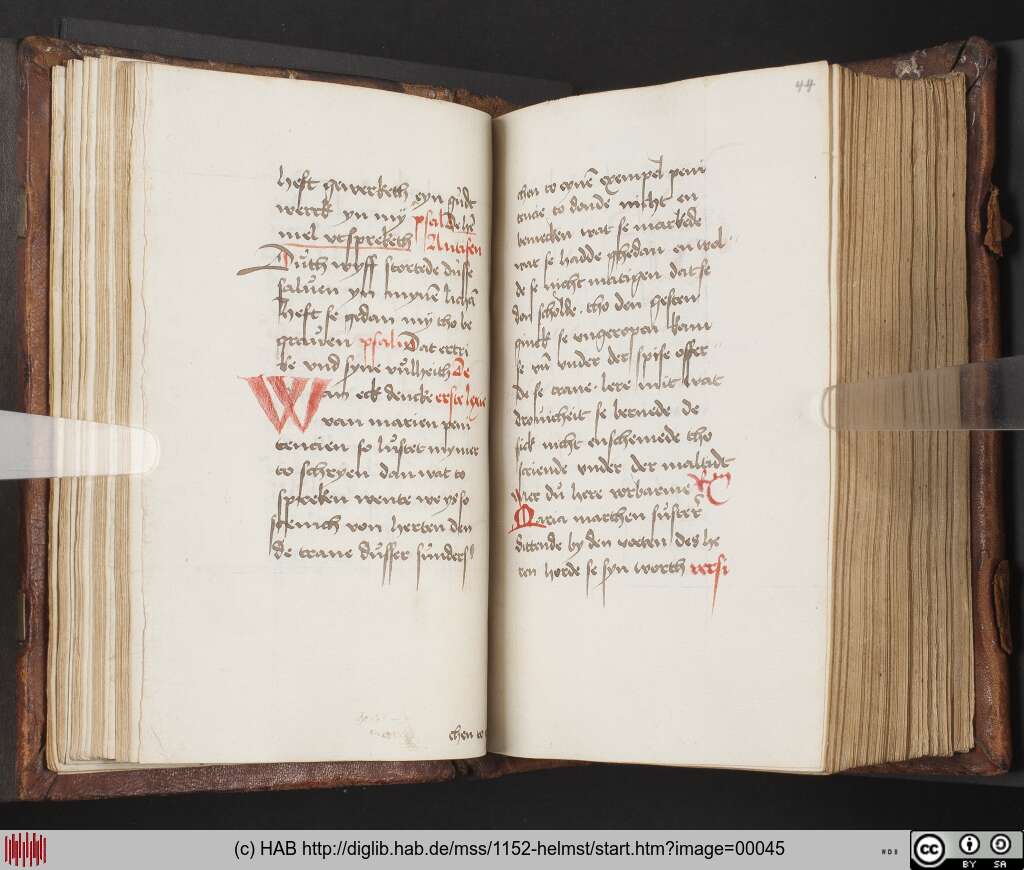 heft gewerketh eyn gudt
werck yn my psal De he
mel utspreketh Antifen
Duth wyff stortede dusse
saluen yn mynē lichā
heft se gedan my tho be
grauen psal Dat ertri
ke vnd syne vulheith De
Wan eck dencke erste
van marien peni
tencien so lustet my mer
to schryen dan wat to
spreken wente wy is so
steinich von herten den
de trane dusser sunders
chen to
44
chen to eynē exempel peni
tencie to donde nicht en
bemecken wat se markede
wat se hadde ghedan en wol
de se nicht matigen dat se
don scholde tho den gesten
ginck se ungeropen kam
se vñ vnder der spise offer
de se trane lere mit wat
drouicheit se bernede de
sick nicht enschemede tho
scriende vnder der maltidt
Mer du here vorbarme
Maria marthen suster
sittende by den voeten des he
ren horde se syn worth versi
(c) HAB http://diglib.hab.de/mss/1152-helmst/start.htm?image=00045
WDB
cc BY SA